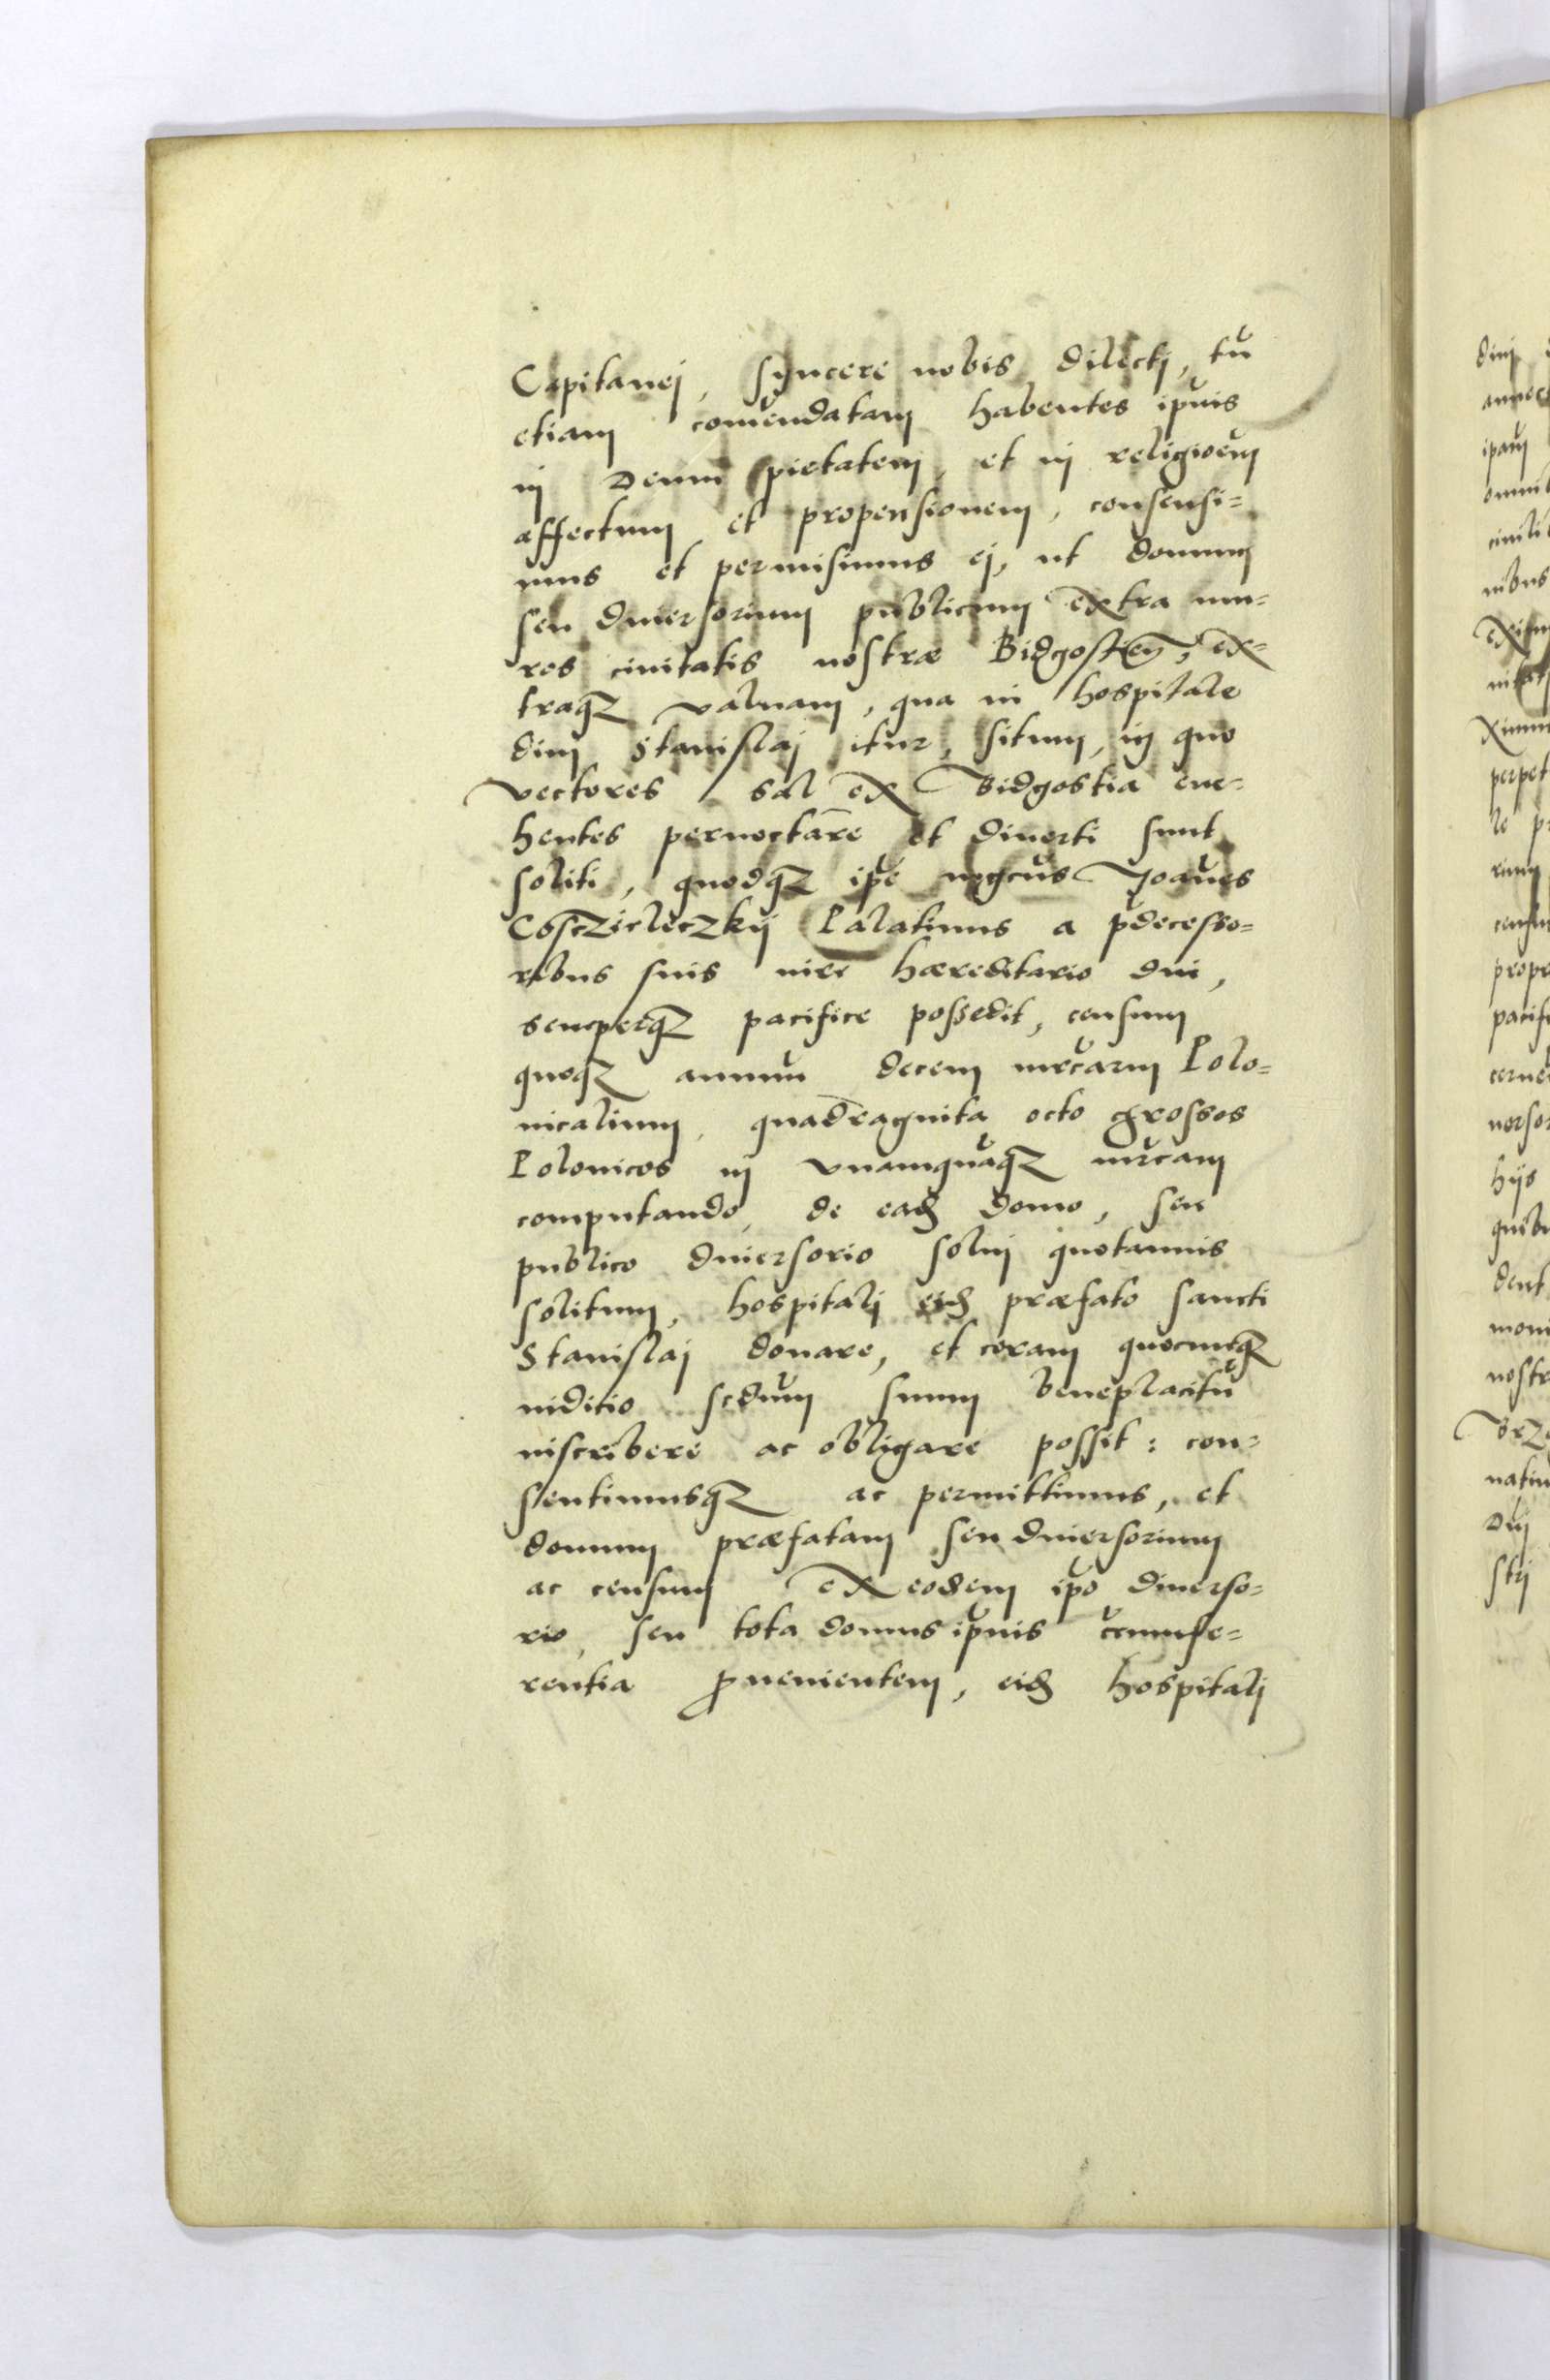 Capitanej, syncere nobis dilectj, tū
etiam com̄endatam habentes ip̄ius
in Deum pietatem, et in religioēm
affectum et propensionem, consensi=
mus et permisimus ej, ut domum
seu diuersorium publicum extra mu=
ros ciuitatis nostræ Bidgostien̄, ex=
traqꝫ valuam, qua in hospitale
diui Stanislaj itur, situm, in quo
vectores sal ex Bidgostia eue=
hentes pernoctare et diuerti sunt
soliti, quodqꝫ ip̄e mgcūs Joan̄es
Cosczieleczkij Palatinus a p̄decesso=
ribus suis iure hæreditario diu,
semperqꝫ pacifice possedit, censum
quoqꝫ annuū decem mrcarū Polo=
nicalium, quadraginta octo grossos
Polonicos in vnamquāqꝫ mrcam
computando, de eadꝫ domo, seu
publico diuersorio solui quotannis
solitum, hospitalj eidꝫ præfato sancti
Stanislaj donare, et coram quocunqꝫ
iuditio scd̄um suum beneplacitū
inscribere ac obligare possit: con=
sentimusqꝫ ac permittimus, et
domum præfatam seu diuersorium
ac censum ex eodem ip̄o diuerso=
rio, seu tota domus ip̄ius circumfe=
rentia ꝓuenientem, eidꝫ hospitalj